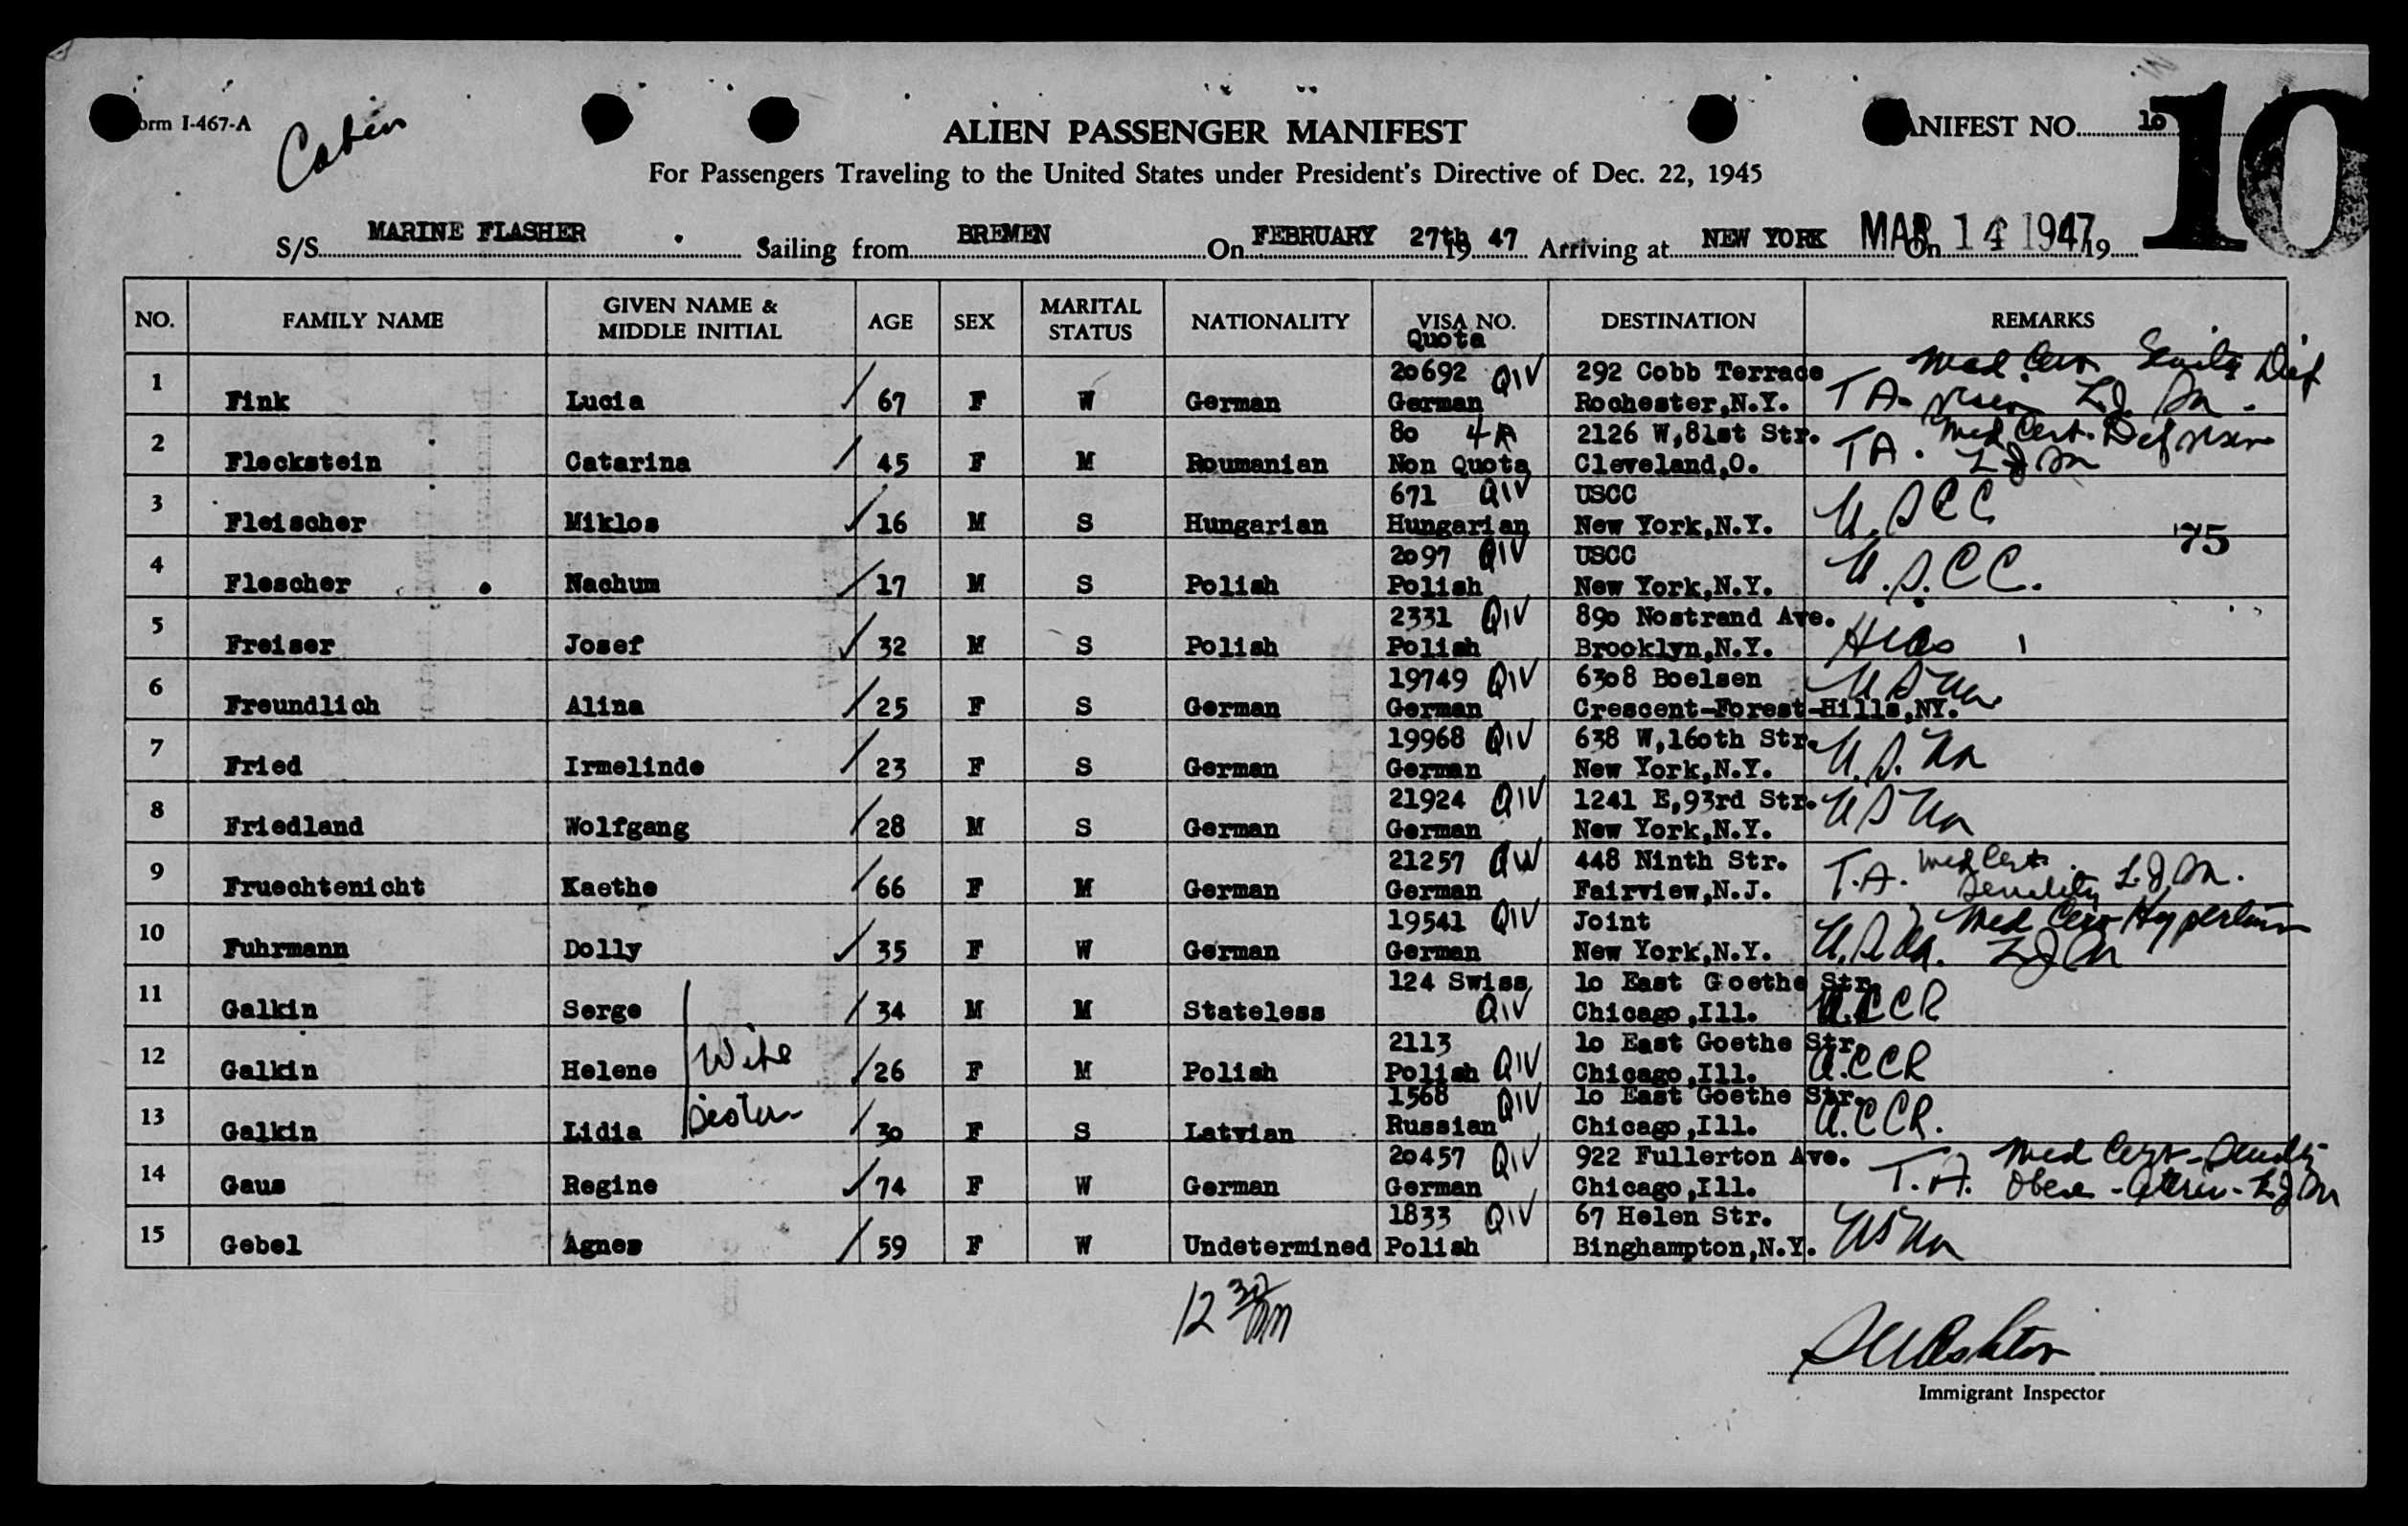 Form I-467-A
Cabin
ALIEN PASSENGER MANIFEST
MANIFEST NO. 10
10
For Passengers Traveling to the United States under President's Directive of Dec. 22, 1945
S/S MARINE FLASHER Sailing from BREMEN On FEBRUARY 27th 19 47 Arriving at NEW YORK On MAR 14 1947 19
NO. FAMILY NAME GIVEN NAME & MIDDLE INITIAL AGE SEX MARITAL STATUS NATIONALITY VISA NO. Quota DESTINATION REMARKS
1 20692 QIV 292 Cobb Terrace Med Cert
Fink Lucia / 67 F W German German Rochester,N.Y. TA
2 80 4A 2126 W,81st Str. Med Cert Def
Fleckstein Catarina / 45 F M Roumanian Non Quota Cleveland,O. TA.
3 671 QIV USCC
Fleischer Miklos ✓ 16 M S Hungarian Hungarian New York,N.Y. U.S.C.C.
75
4 2097 QIV USCC
Flescher Nachum / 17 M S Polish Polish New York,N.Y. U.S.C.C.
5 2331 QIV 890 Nostrand Ave.
Freiser Josef ✓ 32 M S Polish Polish Brooklyn,N.Y. Hias
6 19749 QIV 6308 Boelsen
Freundlich Alina / 25 F S German German Crescent-Forest-Hills,NY.
7 19968 QIV 638 W,160th Str.
Fried Irmelinde / 23 F S German German New York,N.Y.
8 21924 QIV 1241 E,93rd Str.
Friedland Wolfgang / 28 M S German German New York,N.Y.
9 21257 QIV 448 Ninth Str. Med Cert
Fruechtenicht Kaethe / 66 F M German German Fairview,N.J. T.A. Senility
10 19541 QIV Joint Med Cert
Fuhrmann Dolly ✓ 35 F W German German New York,N.Y.
11 124 Swiss 10 East Goethe Str.
Galkin Serge / 34 M M Stateless QIV Chicago,Ill. A.CCR
12 2113 10 East Goethe Str.
Galkin Helene Wife / 26 F M Polish Polish QIV Chicago,Ill. A.CCR
13 1568 QIV 10 East Goethe Str.
Galkin Lidia Sister / 30 F S Latvian Russian Chicago,Ill. A.CCR.
14 20457 QIV 922 Fullerton Ave. Med Cert
Gaus Regine ✓ 74 F W German German Chicago,Ill. T.A.
15 1833 QIV 67 Helen Str.
Gebel Agnes / 59 F W Undetermined Polish Binghampton,N.Y.
12 30
Immigrant Inspector